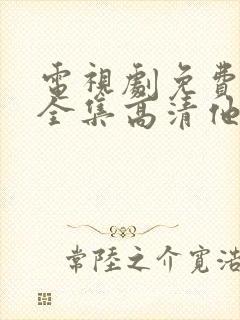 電視劇免費
全集高清他
常陸之介寬浩